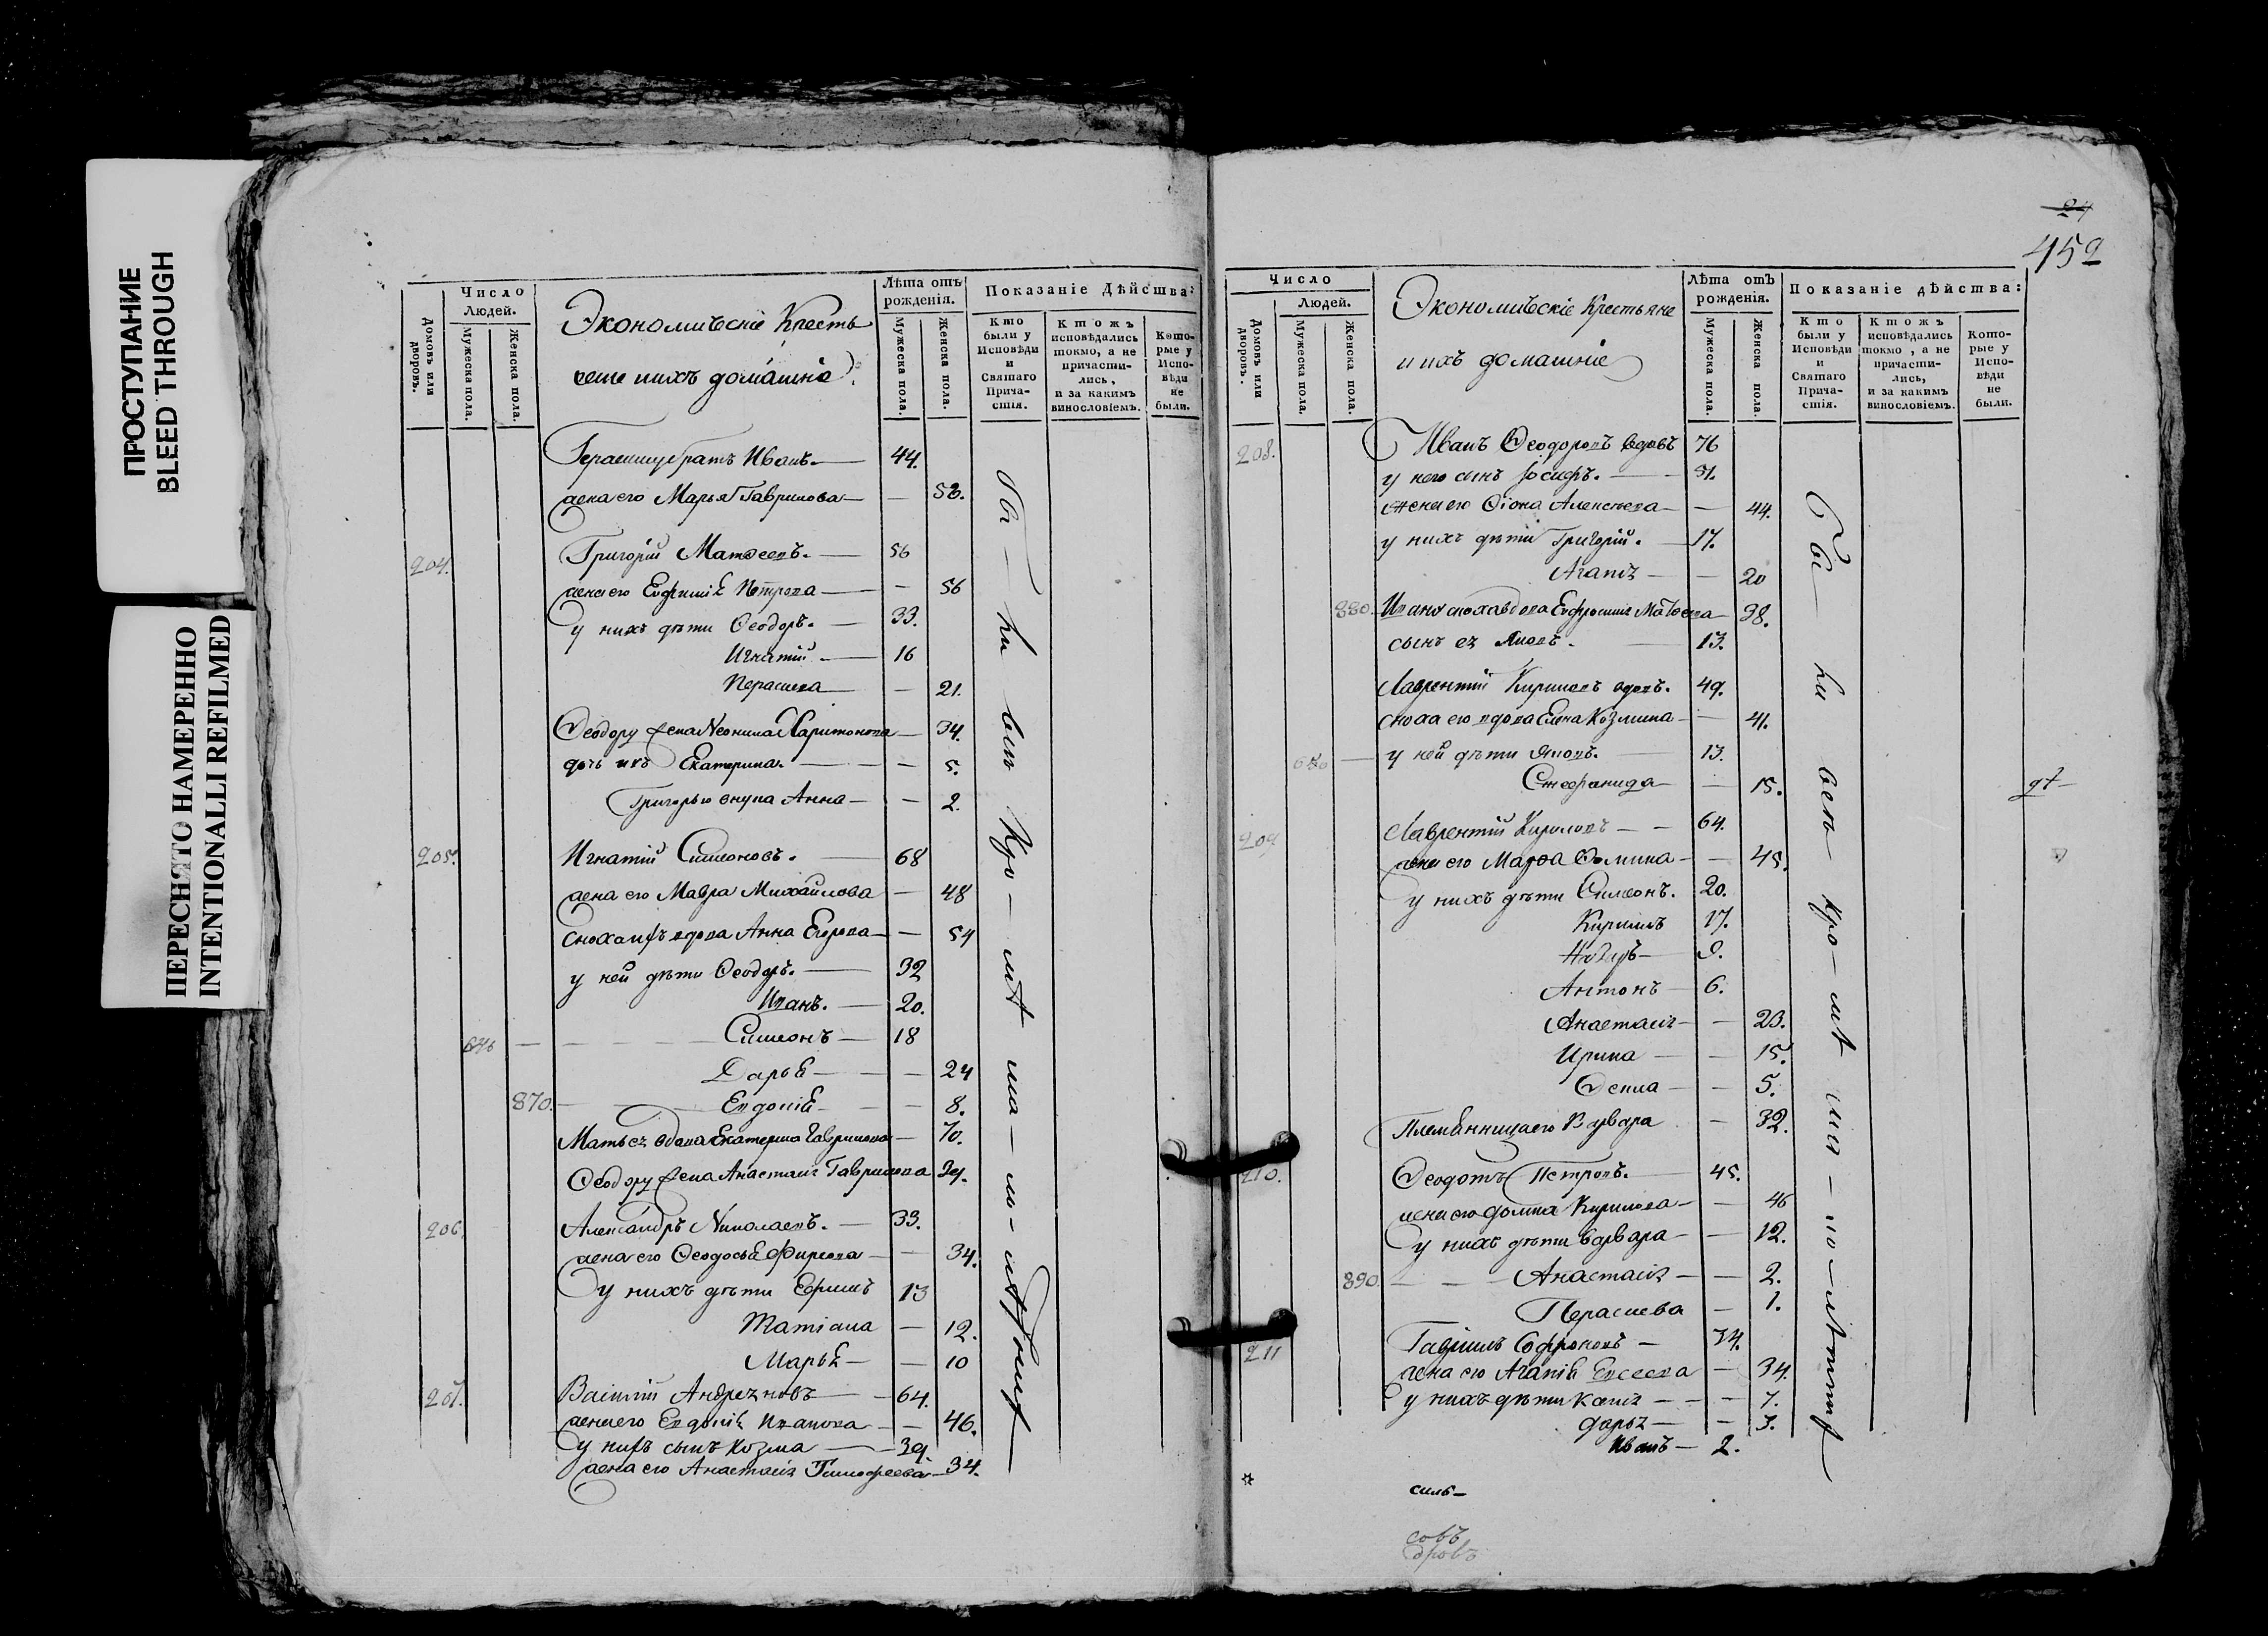 ПРОСТУПАНИЕ
BLEED THROUGH
ПЕРЕСНЯТО НАМЕРЕННО
INTENTIONALLI REFILMED
Число
Людей.
Домовъ или дворовъ.
Мужеска пола.
Женска пола.
Экономическіе Кресть
яне и ихъ домашніе
Лѣта отъ рожденія.
Мужеска пола.
Женска пола.
Показаніе Дѣйства:
Кто были у Исповѣди и Святаго Причастія.
Ктожъ исповѣдались токмо, а не причастились, и за какимъ винословіемъ.
Которые у Исповѣди не были.
Герасиму братъ Иванъ. — 44.
жена его Марья Гаврилова — 53.
204. Григорій Матѳеевъ. — 56
жена его Евфимія Петрова — 56
у нихъ дѣти Ѳеодоръ. — 33.
Игнатій — 16
Параскева — 21.
Ѳеодору жена Неонила Харитонова — 34.
дочь ихъ Екатерина. — 5.
Григорью внука Анна — 2.
205. Игнатій Симеоновъ. — 68
жена его Мавра Михайлова — 48
сноха ихъ вдова Анна Егорова — 54
у ней дѣти Ѳеодоръ. — 32
Иванъ. — 20.
Симеонъ — 18
Дарья — 24
870. Евдокія — 8.
Мать ея вдова Екатерина Гаврилова — 70.
Ѳеодору жена Анастасія Гаврилова 34.
206. Александръ Николаевъ. — 33.
жена его Ѳеодосья Фирсова — 34.
у нихъ дѣти Ефимъ 13
Татіана — 12.
Марья — 10
207. Василій Андреяновъ — 64.
жена его Евдокія Иванова — 46.
у нихъ сынъ Козма — 39.
жена его Анастасія Тимофеева — 34.
452
Число
Людей.
Домовъ или дворовъ.
Мужеска пола.
Женска пола.
Экономическіе Крестьяне
и ихъ домашніе
Лѣта отъ рожденія.
Мужеска пола.
Женска пола.
Показаніе дѣйства:
Кто были у Исповѣди и Святаго Причастія.
Ктожъ исповѣдались токмо, а не причастились, и за какимъ винословіемъ.
Которые у Исповѣди не были.
208. Иванъ Ѳеодоровъ вдовъ 76
у него сынъ Іосифъ. —
жена его Алексѣева — 44.
у нихъ дѣти Григорій. — 17.
Агапія — 20
880. Ивану сноха вдова Евфросинія Матѳеева — 38.
сынъ ея Яковъ. — 13.
Лаврентій Кириловъ вдовъ. 49.
сноха его вдова Елена Козмина — 41.
у ней дѣти Яковъ. — 13.
Стефанида — 15.
209 Лаврентій Кириловъ — 64.
жена его Марѳа Ѳомина — 45.
у нихъ дѣти Симеонъ. 20.
Кирилъ 17.
Антонъ — 6.
Анастасія — 23.
Ирина — 15.
Ѳекла — 5.
Племянница его Варвара — 32.
210. Ѳеодотъ Петровъ. — 45.
жена его Домна Кирилова — 46
у нихъ дѣти Варвара — 12.
890. Анастасія — 2.
Параскева — 1.
211 Гавріилъ Софроновъ — 34.
жена его Агапія Евсеева — 34.
у нихъ дѣти — 7.
Дарья — 3.
Иванъ — 2.